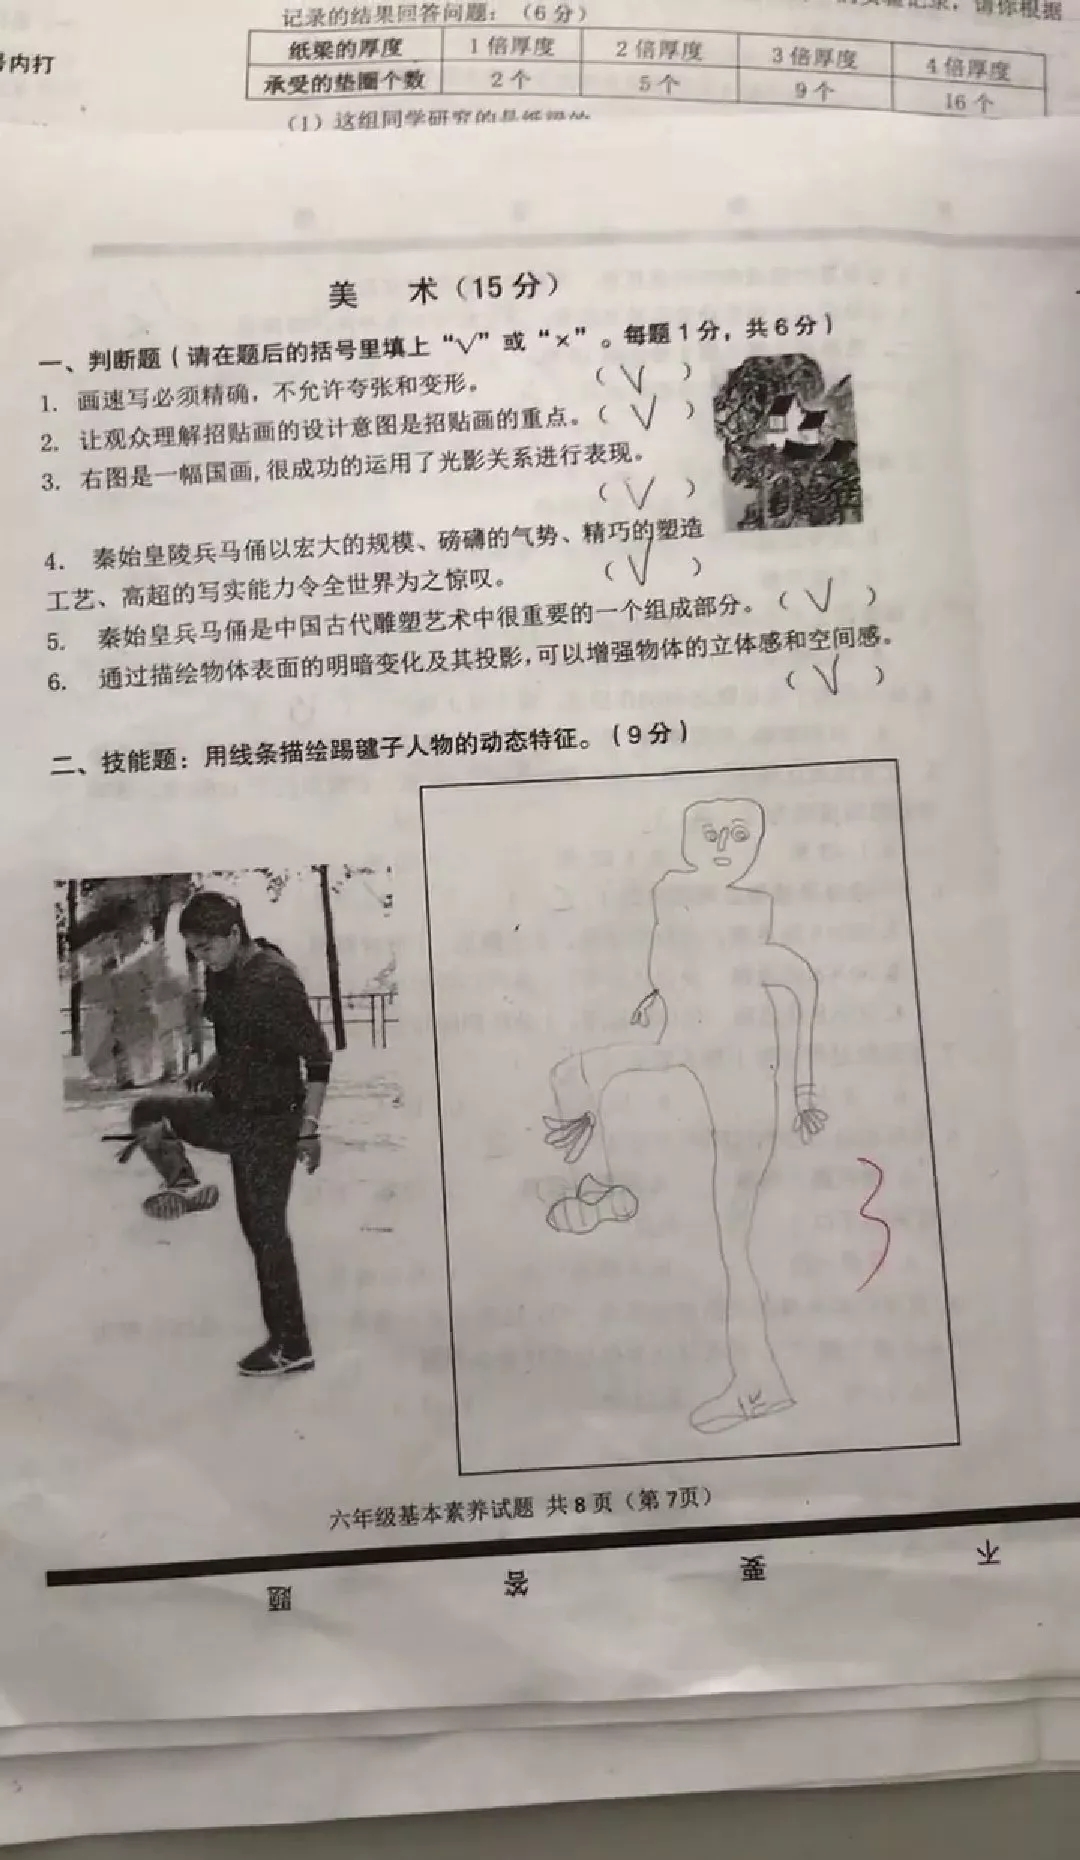 的实验记录，请你根据
记录的结果回答问题：（6分）
号内打
纸梁的厚度 1倍厚度 2倍厚度 3倍厚度 4倍厚度
承受的垫圈个数 2个 5个 9个 16个
（1）这组同学研究的是纸梁的
美 术（15分）
一、判断题（请在题后的括号里填上“√”或“×”。每题1分，共6分）
1. 画速写必须精确，不允许夸张和变形。（√）
2. 让观众理解招贴画的设计意图是招贴画的重点。（√）
3. 右图是一幅国画,很成功的运用了光影关系进行表现。
（√）
4. 秦始皇陵兵马俑以宏大的规模、磅礴的气势、精巧的塑造
工艺、高超的写实能力令全世界为之惊叹。（√）
5. 秦始皇兵马俑是中国古代雕塑艺术中很重要的一个组成部分。（√）
6. 通过描绘物体表面的明暗变化及其投影,可以增强物体的立体感和空间感。
（√）
二、技能题：用线条描绘踢毽子人物的动态特征。（9分）
3
六年级基本素养试题 共8页（第7页）
题 答 要 不